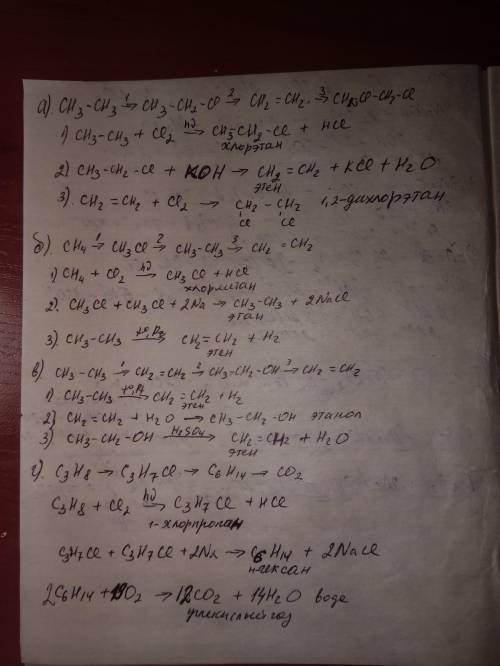 а) CH3-CH3 →1 CH3-CH2-Cl →2 CH2=CH2 →3 CH2Cl-CH2-Cl
1) CH3-CH3 + Cl2 →hν CH3CH2-Cl + HCl
хлорэтан
2) CH3-CH2-Cl + KOH → CH2=CH2 + KCl + H2O
этен
3) CH2=CH2 + Cl2 → CH2-CH2 1,2-дихлорэтан
Cl Cl
б) CH4 →1 CH3Cl →2 CH3-CH3 →3 CH2=CH2
1) CH4 + Cl2 →hν CH3Cl + HCl
хлорметан
2. CH3Cl + CH3Cl + 2Na → CH3-CH3 + 2NaCl
этан
3) CH3-CH3 →t°, Pt CH2=CH2 + H2
этен
в) CH3-CH3 →1 CH2=CH2 →2 CH3-CH2-OH →3 CH2=CH2
1) CH3-CH3 →t°, Pt CH2=CH2 + H2
этен
2) CH2=CH2 + H2O → CH3-CH2-OH этанол
3) CH3-CH2-OH →H2SO4 CH2=CH2 + H2O
этен
г) C3H8 → C3H7Cl → C6H14 → CO2
C3H8 + Cl2 →hν C3H7Cl + HCl
1-хлорпропан
C3H7Cl + C3H7Cl + 2Na → C6H14 + 2NaCl
н-гексан
2C6H14 + 19O2 → 12CO2 + 14H2O вода
углекислый газ